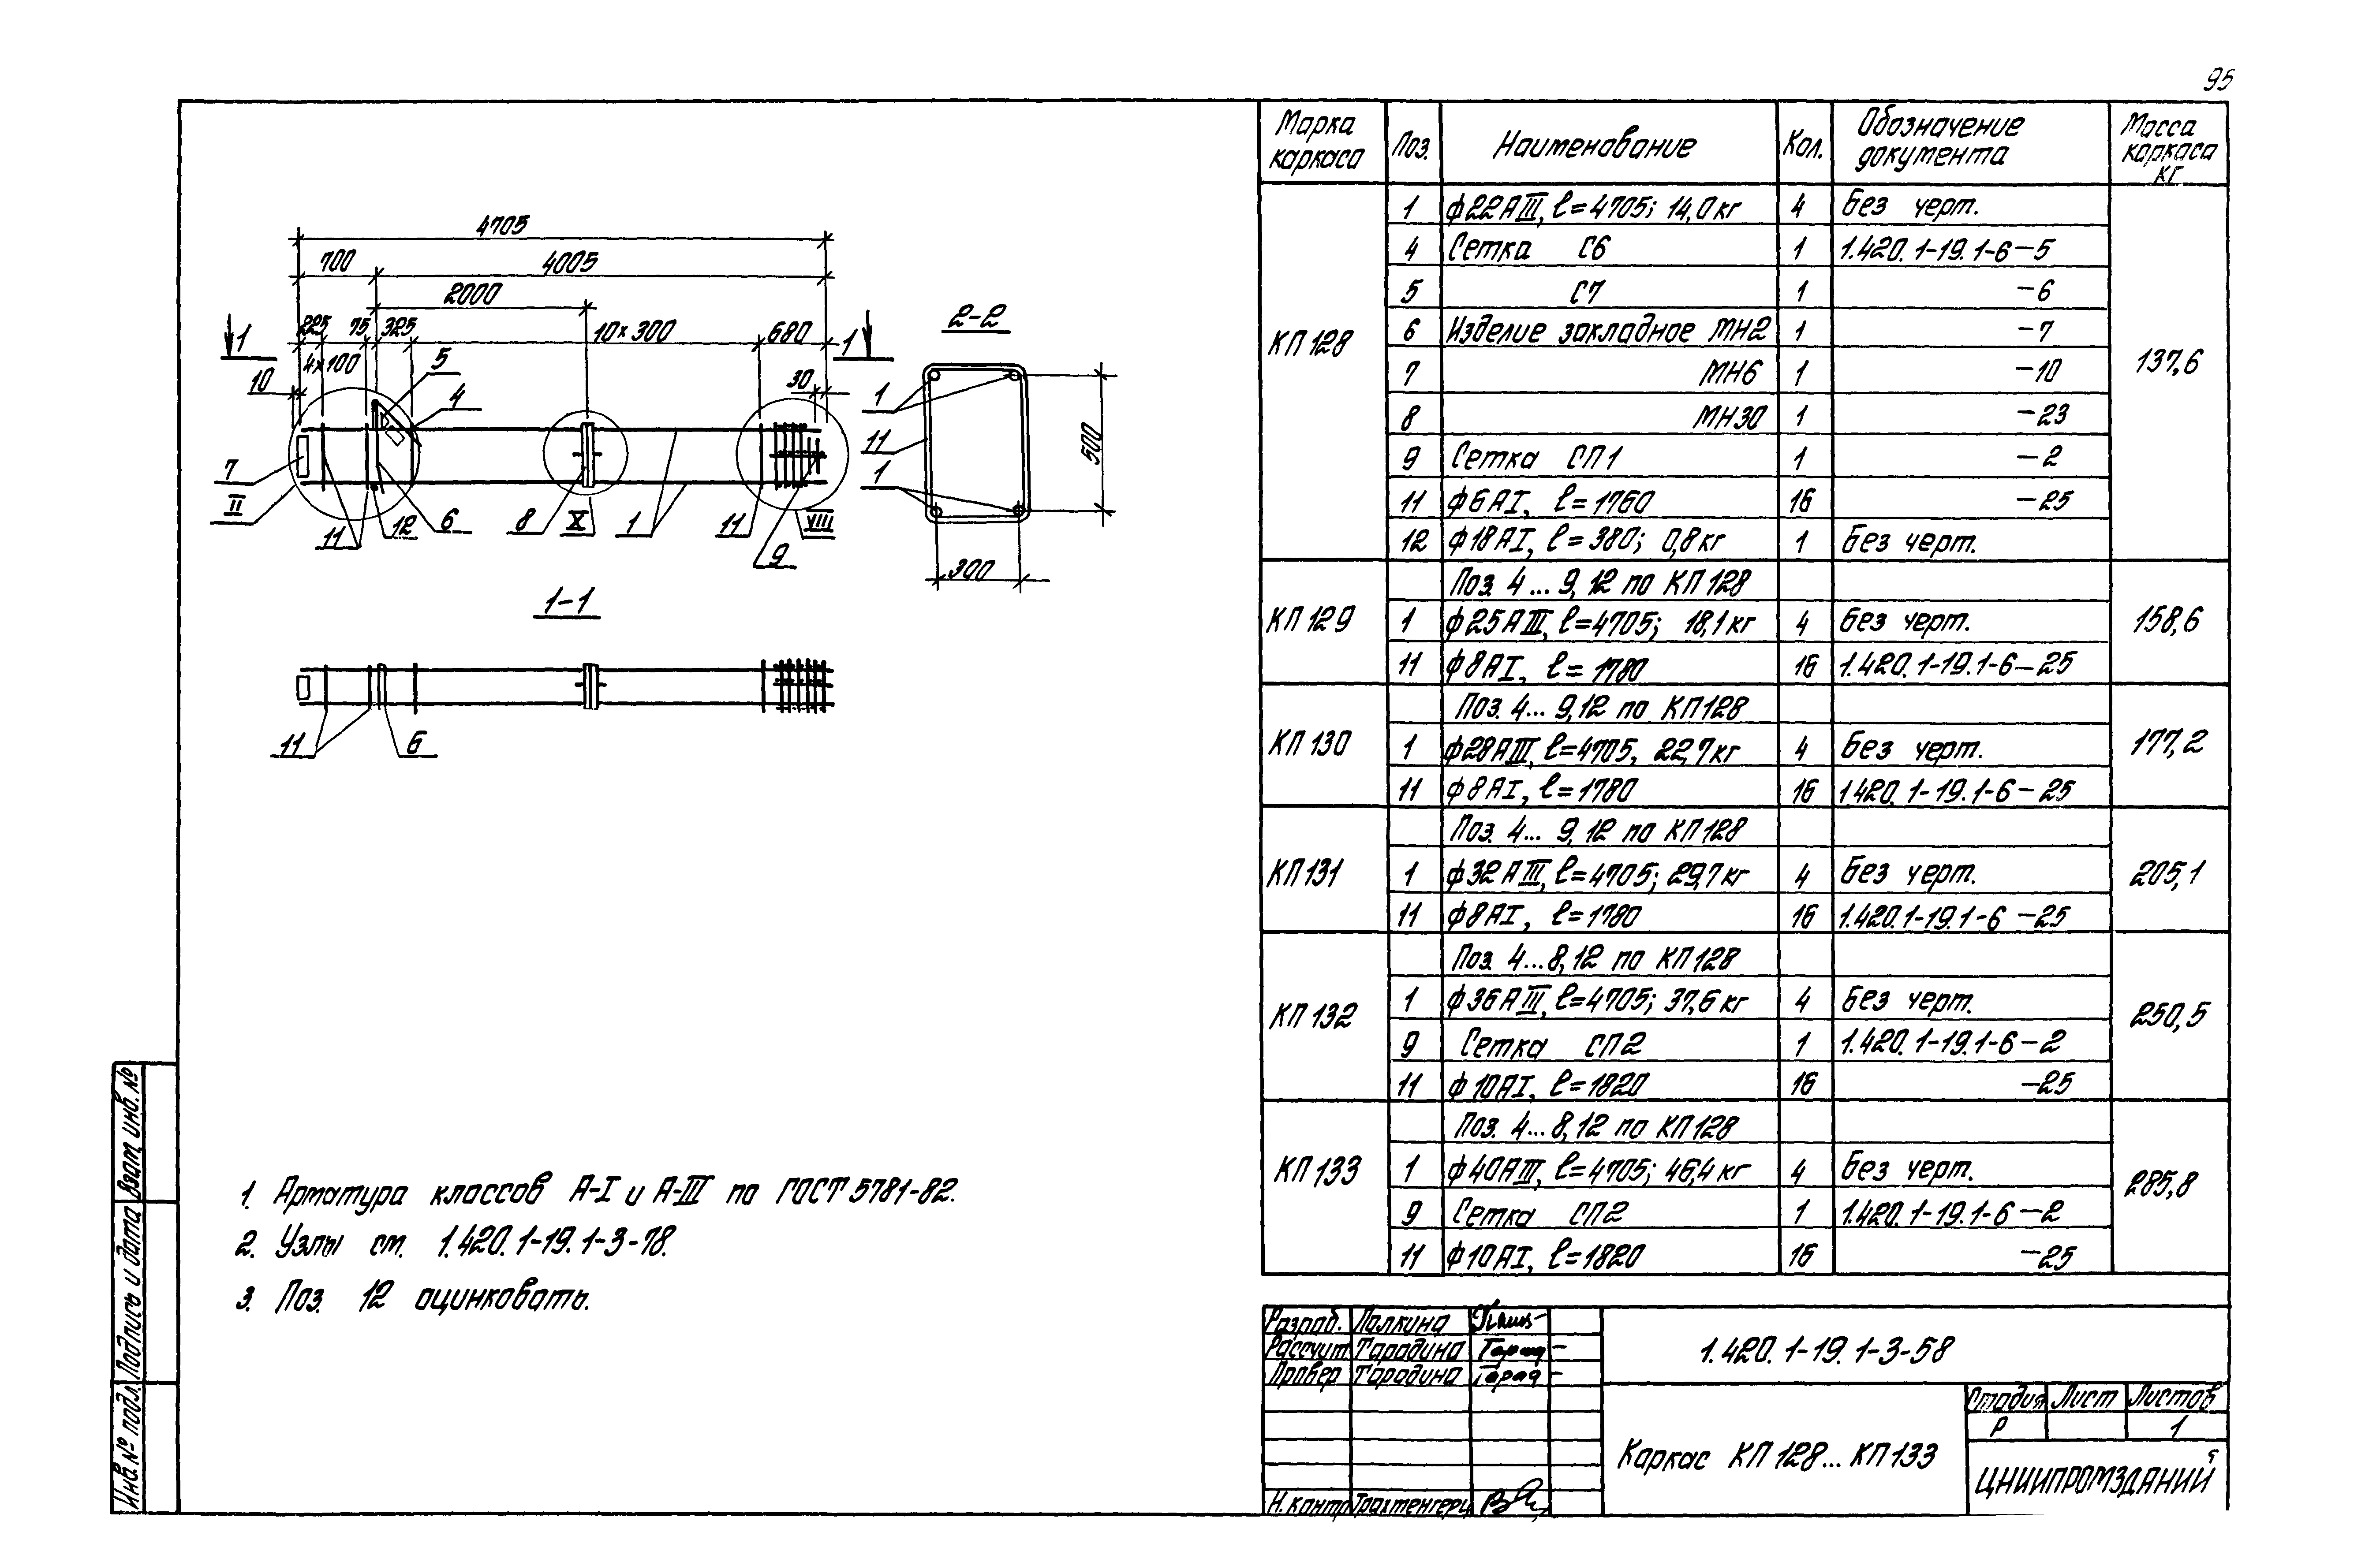 95
4705
700 4005
2000
225 75 325 10×300 680
1 1
4×100
10 30
5
4
7
II
11 12 6 8 X 1 11 VIII
9
2-2
1
11
1
500
300
1-1
11 6
Марка каркаса Поз. Наименование Кол. Обозначение документа Масса каркаса кг
КП 128 137,6
1 ф22АIII, ℓ=4705; 14,0кг 4 Без черт.
4 Сетка С6 1 1.420.1-19.1-6-5
5 С7 1 -6
6 Изделие закладное МН2 1 -7
7 МН6 1 -10
8 МН30 1 -23
9 Сетка СП1 1 -2
11 ф6АI, ℓ=1760 16 -25
12 ф18АI, ℓ=380; 0,8кг 1 Без черт.
КП 129 158,6
Поз. 4...9, 12 по КП128
1 ф25АIII, ℓ=4705; 18,1кг 4 Без черт.
11 ф8АI, ℓ=1780 16 1.420.1-19.1-6-25
КП 130 177,2
Поз. 4...9,12 по КП128
1 ф28АIII, ℓ=4705, 22,7кг 4 Без черт.
11 ф8АI, ℓ=1780 16 1.420.1-19.1-6-25
КП131 205,1
Поз. 4...9, 12 по КП128
1 ф32АIII, ℓ=4705; 29,7кг 4 Без черт.
11 ф8АI, ℓ=1780 16 1.420.1-19.1-6-25
КП 132 250,5
Поз. 4...8,12 по КП128
1 ф36АIII, ℓ=4705; 37,6кг 4 Без черт.
9 Сетка СП2 1 1.420.1-19.1-6-2
11 ф10АI, ℓ=1820 16 -25
КП 133 285,8
Поз. 4...8,12 по КП128
1 ф40АIII, ℓ=4705; 46,4кг 4 Без черт.
9 Сетка СП2 1 1.420.1-19.1-6-2
11 ф10АI, ℓ=1820 16 -25
1. Арматура классов А-I и А-III по ГОСТ 5781-82.
2. Узлы см. 1.420.1-19.1-3-78.
3. Поз. 12 оцинковать.
Взам. инв. №
Подпись и дата
Инв. № подл.
Разраб. Палкина
Рассчит. Тарадина Тарад
Провер Тарадина Тарад
Н.контр Трахтенгерц
1.420.1-19.1-3-58
Каркас КП 128...КП133
Стадия Лист Листов
Р 1
ЦНИИПРОМЗДАНИЙ